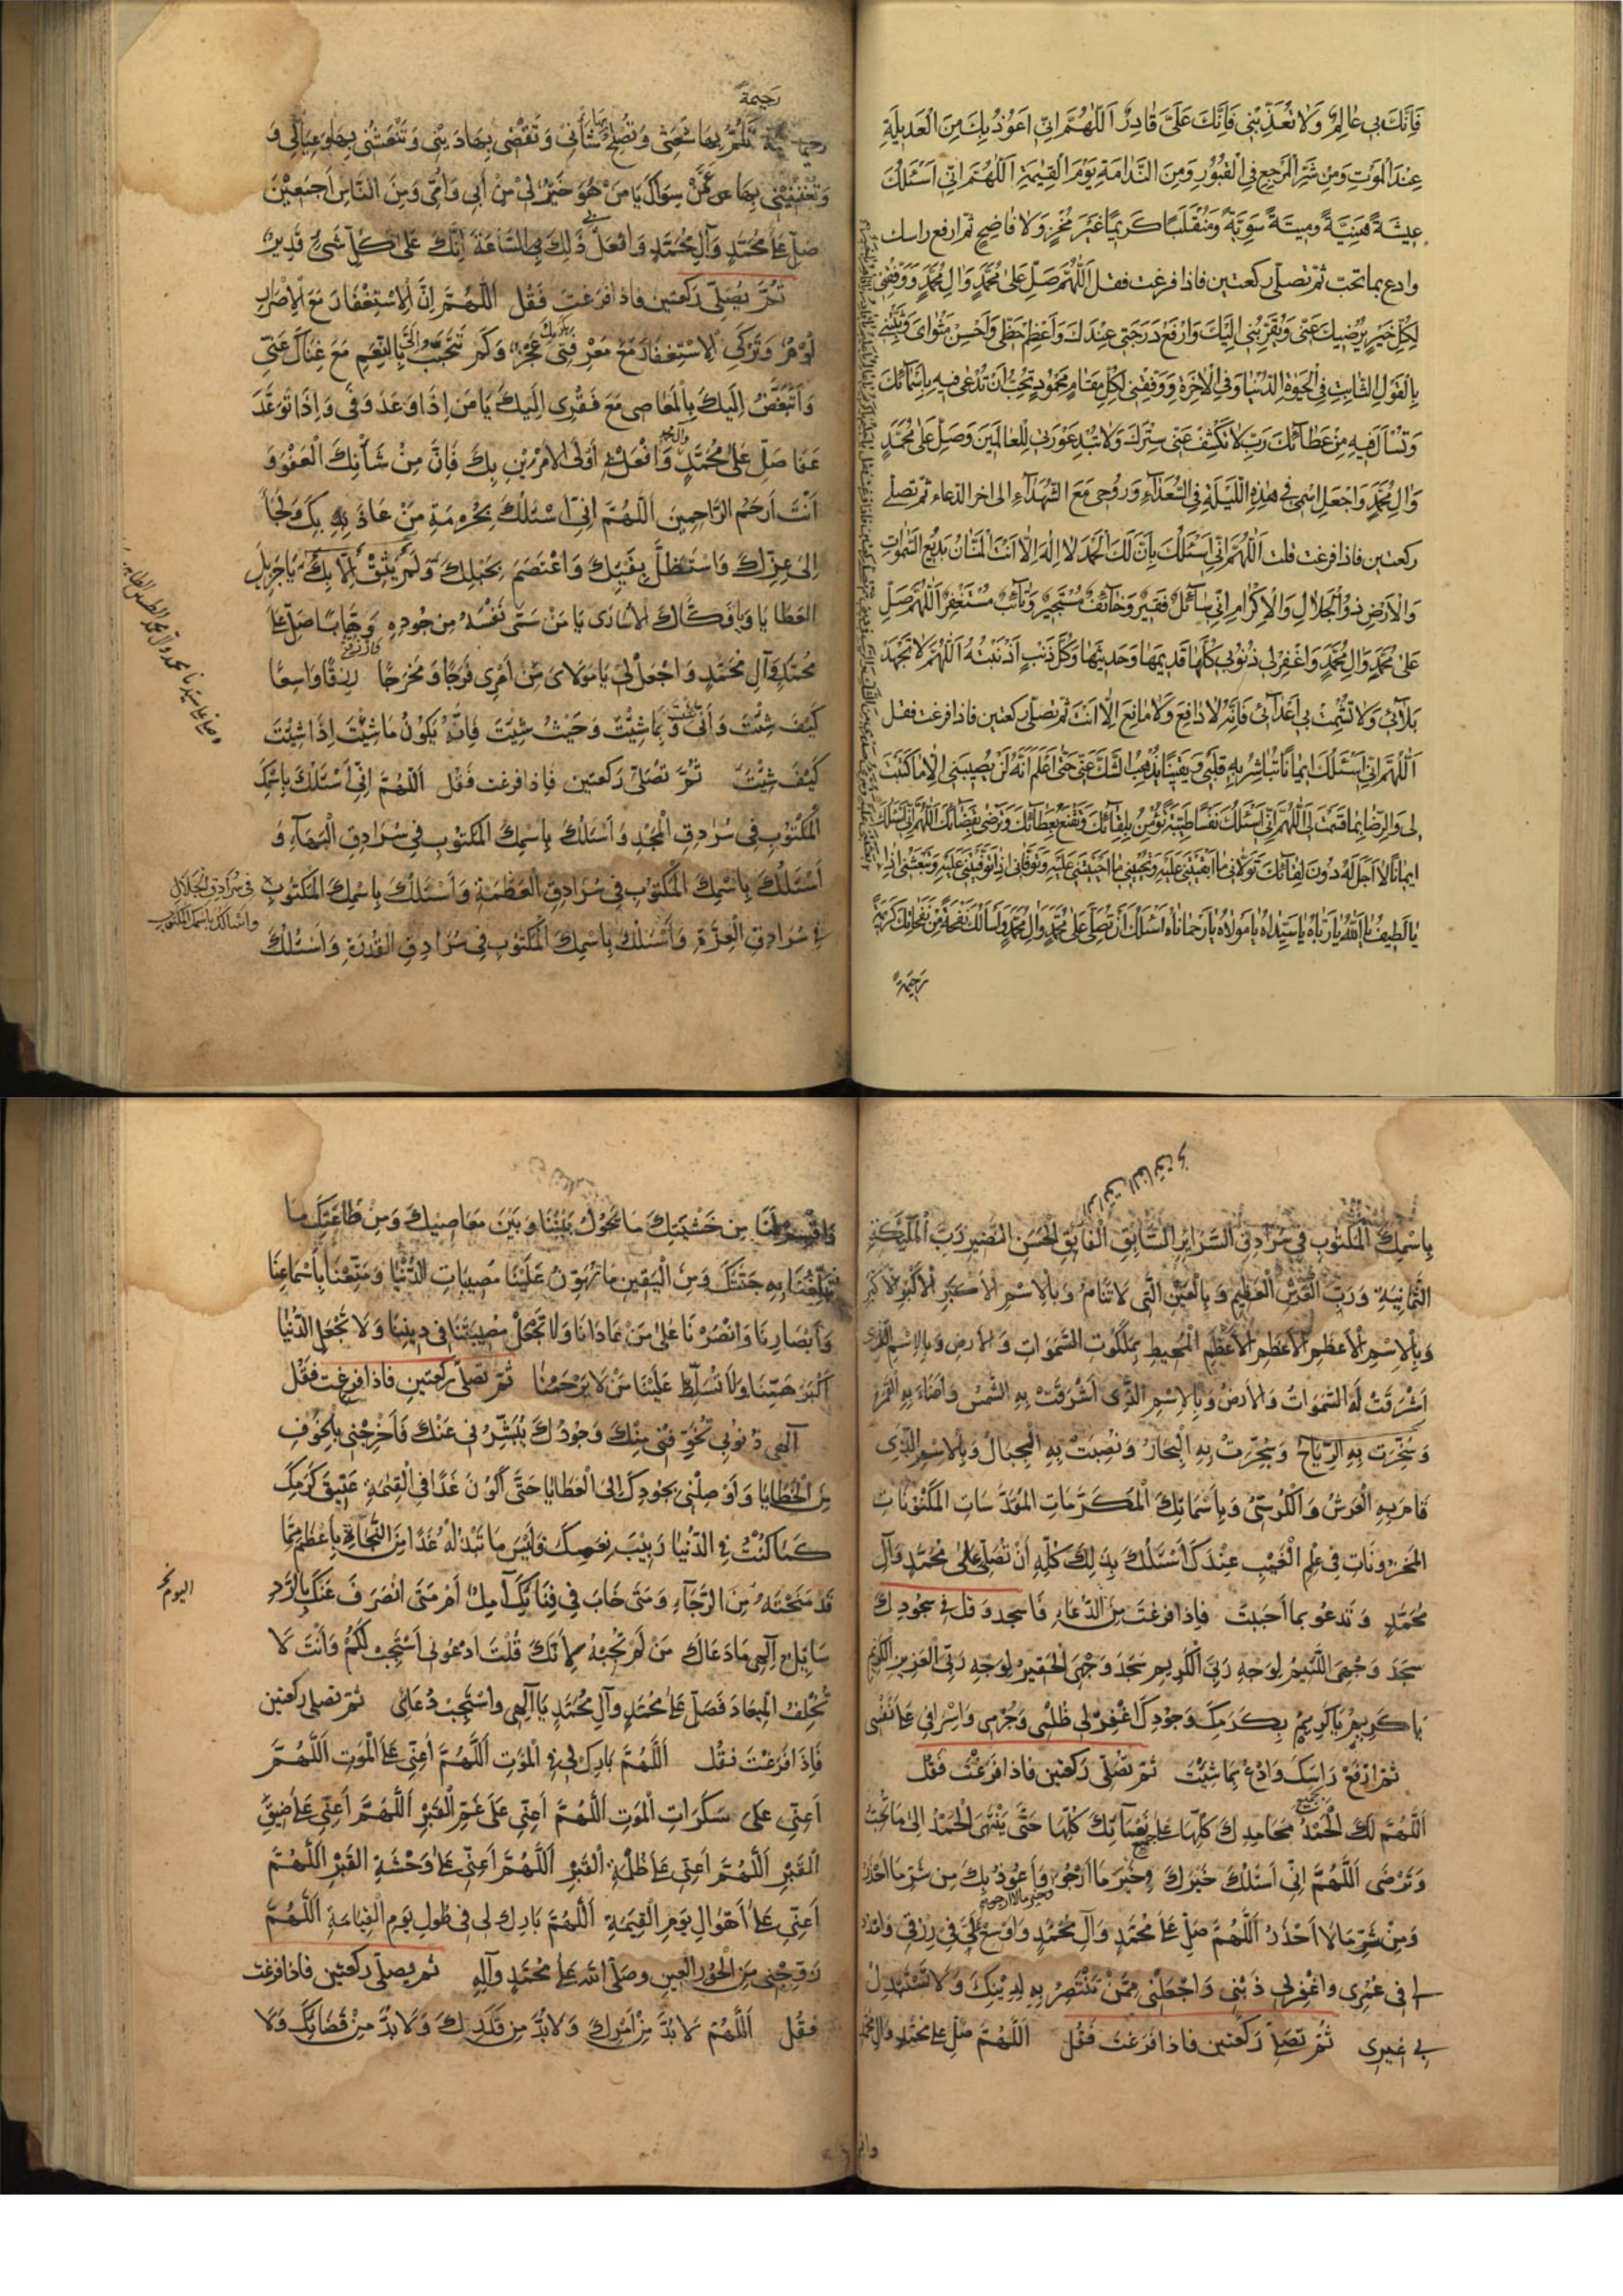 فَاِنَّكَ بِي عَالِمٌ وَلَا تُعَذِّبْنِي فَاِنَّكَ عَلَيَّ قَادِرٌ اَللّٰهُمَّ اِنِّي اَعُوذُ بِكَ مِنَ الْعَدِيلَةِ
عِنْدَ الْمَوْتِ وَمِنْ شَرِّ الْمَرْجِعِ فِي الْقُبُورِ وَمِنَ النَّدَامَةِ يَوْمَ الْقِيٰمَةِ اَللّٰهُمَّ اِنِّي اَسْئَلُكَ
عِيشَةً هَنِيَّةً وَمِيتَةً سَوِيَّةً وَمُنْقَلَبًا كَرِيمًا غَيْرَ مُخْزٍ وَلَا فَاضِحٍ ثم ارفع راسك
وادع بما تحبّ ثمّ تصلّي ركعتين فاذا فرغت فقل اَللّٰهُمَّ صَلِّ عَلٰى مُحَمَّدٍ وَاٰلِ مُحَمَّدٍ وَوَفِّقْنِي
لِكُلِّ خَيْرٍ يُرْضِيكَ عَنِّي وَيُقَرِّبُنِي اِلَيْكَ وَارْفَعْ دَرَجَتِي عِنْدَكَ وَاَعْظِمْ حَظِّي وَاَحْسِنْ مَثْوَايَ وَثَبِّتْنِي
بِالْقَوْلِ الثَّابِتِ فِي الْحَيٰوةِ الدُّنْيَا وَفِي الْاٰخِرَةِ وَوَفِّقْنِي لِكُلِّ مَقَامٍ مَحْمُودٍ تُحِبُّ اَنْ تُدْعٰى فِيهِ بِاَسْمَائِكَ
وَتُسْأَلَ فِيهِ مِنْ عَطَائِكَ رَبِّ لَا تَكْشِفْ عَنِّي سِتْرَكَ وَلَا تُبْدِ عَوْرَتِي لِلْعَالَمِينَ وَصَلِّ عَلٰى مُحَمَّدٍ
وَاٰلِ مُحَمَّدٍ وَاجْعَلِ اسْمِي فِي هٰذِهِ اللَّيْلَةِ فِي السُّعَدَاءِ وَرُوحِي مَعَ الشُّهَدَاءِ الى اخر الدعاء ثم تصلي
ركعتين فاذا فرغت قلت اَللّٰهُمَّ اِنِّي اَسْئَلُكَ بِاَنَّ لَكَ الْحَمْدَ لَا اِلٰهَ اِلَّا اَنْتَ الْمَنَّانُ بَدِيعُ السَّمٰوَاتِ
وَالْاَرْضِ ذُو الْجَلَالِ وَالْاِكْرَامِ اِنِّي سَائِلٌ فَقِيرٌ وَخَائِفٌ مُسْتَجِيرٌ وَتَائِبٌ مُسْتَغْفِرٌ اَللّٰهُمَّ صَلِّ
عَلٰى مُحَمَّدٍ وَاٰلِ مُحَمَّدٍ وَاغْفِرْ لِي ذُنُوبِي كُلَّهَا قَدِيمَهَا وَحَدِيثَهَا وَكُلَّ ذَنْبٍ اَذْنَبْتُهُ اَللّٰهُمَّ لَا تُجْهِدْ
بَلَائِي وَلَا تُشْمِتْ بِي اَعْدَائِي فَاِنَّهُ لَا دَافِعَ وَلَا مَانِعَ اِلَّا اَنْتَ ثُمّ تصلّي ركعتين فاذا فرغت فقل
اَللّٰهُمَّ اِنِّي اَسْئَلُكَ اِيمَانًا تُبَاشِرُ بِهِ قَلْبِي وَيَقِينًا يُذْهِبُ الشَّكَّ عَنِّي حَتّٰى اَعْلَمَ اَنَّهُ لَنْ يُصِيبَنِي اِلَّا مَا كَتَبْتَ
لِي وَالرِّضَا بِمَا قَسَمْتَ لِي اَللّٰهُمَّ اِنِّي اَسْئَلُكَ نَفْسًا طَيِّبَةً تُؤْمِنُ بِلِقَائِكَ وَتَقْنَعُ بِعَطَائِكَ وَتَرْضٰى بِقَضَائِكَ اَللّٰهُمَّ اِنِّي اَسْئَلُكَ
اِيمَانًا لَا اَجَلَ لَهُ دُونَ لِقَائِكَ تَوَلَّانِي مَا اَبْقَيْتَنِي عَلَيْهِ وَتُحْيِينِي مَا اَحْيَيْتَنِي عَلَيْهِ وَتَوَفَّانِي اِذَا تَوَفَّيْتَنِي عَلَيْهِ وَتَبْعَثُنِي اِذَا
يَا لَطِيفُ يَا اَللّٰهُ يَا رَبَّاهُ يَا سَيِّدَاهُ يَا مَوْلَاهُ يَا رَحْمَانَاهُ اَسْئَلُكَ اَنْ تُصَلِّيَ عَلٰى مُحَمَّدٍ وَاٰلِ مُحَمَّدٍ وَاَسْأَلُكَ نَفْحَةً مِنْ نَفَحَاتِكَ كَرِيمَةً
رَحِيمَةً
رَحِيمَةً
تَلُمُّ بِهَا شَعْثِي وَتُصْلِحُ بِهَا شَأْنِي وَتَقْضِي بِهَا دَيْنِي وَتَنْعَشُنِي بِهَا وَعِيَالِي وَ
وَتُغْنِيْنِي بِهَا عَمَّنْ سِوَاكَ يَا مَنْ هُوَ خَيْرٌ لِي مِنْ أَبِي وَأُمِّي وَمِنَ النَّاسِ أَجْمَعِيْنَ
صَلِّ عَلَى مُحَمَّدٍ وَآلِ مُحَمَّدٍ وَافْعَلْ ذَلِكَ بِي السَّاعَةَ إِنَّكَ عَلَى كُلِّ شَيْءٍ قَدِيرٌ
ثُمَّ تُصَلِّي رَكعَتين فاذا فَرَغتَ فَقُل اَللّٰهُمَّ اِنَّ الْاِسْتِغْفَارَ مَعَ الْاِصْرَارِ
لُؤْمٌ وَتَرْكِي الْاِسْتِغْفَارَ مَعَ مَعْرِفَتِي بِكَرَمِكَ عَجْزٌ وَكَمْ تَتَحَبَّبُ اِلَيَّ بِالنِّعَمِ مَعَ غِنَاكَ عَنِّي
وَأَتَبَغَّضُ اِلَيْكَ بِالْمَعَاصِي مَعَ فَقْرِي اِلَيْكَ يَا مَن اِذَا وَعَدَ وَفَى وَاِذَا تَوَعَّدَ
عَفَا صَلِّ عَلَى مُحَمَّدٍ وَآلِ مُحَمَّدٍ وَافْعَلْ بِي أَوْلَى الْاَمْرَيْنِ بِكَ فَاِنَّ مِنْ شَأْنِكَ الْعَفْوَ وَ
أَنْتَ أَرْحَمُ الرَّاحِمِينَ اَللّٰهُمَّ اِنِّي اَسْئَلُكَ بِحُرْمَةِ مَنْ عَاذَ بِكَ وَلَجَأَ
اِلَى عِزِّكَ وَاسْتَظَلَّ بِفَيْئِكَ وَاعْتَصَمَ بِحَبْلِكَ وَلَمْ يَثِقْ اِلَّا بِكَ يَا جَزِيلَ
العَطَايَا وَيَا فَكَّاكَ الْاُسَارَى يَا مَنْ سَمَّى نَفْسَهُ مِنْ جُودِهِ وَهَّابًا صَلِّ عَلَى
مُحَمَّدٍ وَآلِ مُحَمَّدٍ وَاجْعَلْ لِي يَا مَوْلَايَ مِنْ أَمْرِي فَرَجًا وَمَخْرَجًا وَارْزُقْنِي رِزْقًا وَاسِعًا
كَيْفَ شِئْتَ وَأَنَّى شِئْتَ وَبِمَا شِئْتَ وَحَيْثُ شِئْتَ فَاِنَّهُ يَكُونُ مَا شِئْتَ اِذَا شِئْتَ
كَيْفَ شِئْتَ ثُمَّ تُصَلِّي رَكعَتين فَاِذا فرغت فَقُل اَللّٰهُمَّ اِنِّي اَسْئَلُكَ بِاسْمِكَ
الْمَكْتُوبِ فِي سُرَادِقِ الْمَجْدِ وَأَسْئَلُكَ بِاسْمِكَ الْمَكْتُوبِ فِي سُرَادِقِ الْبَهَاءِ وَ
أَسْئَلُكَ بِاسْمِكَ الْمَكْتُوبِ فِي سُرَادِقِ الْعَظَمَةِ وَأَسْئَلُكَ بِاسْمِكَ الْمَكْتُوبِ
فى سرادق الجلال
واسالك باسمك المكتوب
فِي سُرَادِقِ الْعِزَّةِ وَأَسْئَلُكَ بِاسْمِكَ الْمَكْتُوبِ فِي سُرَادِقِ الْقُدْرَةِ وَأَسْئَلُكَ
السابق الفائق
بِاسْمِكَ الْمَكْتُوبِ فِي سُرَادِقِ السَّرَائِرِ السَّابِقِ الْفَائِقِ الْحَسَنِ النَّضِيرِ رَبِّ الْمَلٰئِكَةِ
الثَّمَانِيَةِ وَرَبِّ الْعَرْشِ الْعَظِيمِ وَبِالْعَيْنِ الَّتِي لَا تَنَامُ وَبِالْاِسْمِ الْاَكْبَرِ الْاَكْبَرِ الْاَكْبَرِ
وَبِالْاِسْمِ الْاَعْظَمِ الْاَعْظَمِ الْاَعْظَمِ الْمُحِيطِ بِمَلَكُوتِ السَّمٰوَاتِ وَالْاَرْضِ وَبِالْاِسْمِ الَّذِي
اَشْرَقَتْ لَهُ السَّمٰوَاتُ وَالْاَرْضُ وَبِالْاِسْمِ الَّذِي اَشْرَقَتْ بِهِ الشَّمْسُ وَاَضَاءَ بِهِ الْقَمَرُ
وَسُخِّرَتْ بِهِ الرِّيَاحُ وَسُجِّرَتْ بِهِ الْبِحَارُ وَنُصِبَتْ بِهِ الْجِبَالُ وَبِالْاِسْمِ الَّذِي
قَامَ بِهِ الْعَرْشُ وَالْكُرْسِيُّ وَبِأَسْمَائِكَ الْمُكَرَّمَاتِ الْمُقَدَّسَاتِ الْمَكْنُونَاتِ
الْمَخْزُونَاتِ فِي عِلْمِ الْغَيْبِ عِنْدَكَ أَسْئَلُكَ بِذَلِكَ كُلِّهِ أَنْ تُصَلِّيَ عَلٰى مُحَمَّدٍ وَآلِ
مُحَمَّدٍ وَتَدعُو بِما أحبَبتَ فَاِذا فرغتَ مِنَ الدّعَاءِ فَاسجد وَقل فى سجُودِكَ
سَجَدَ وَجْهِيَ اللَّئِيمُ لِوَجْهِ رَبِّيَ الْكَرِيمِ سَجَدَ وَجْهِيَ الْحَقِيرُ لِوَجْهِ رَبِّيَ الْعَزِيزِ الْكَرِيمِ
يَا كَرِيمُ يَا كَرِيمُ بِكَرَمِكَ وَجُودِكَ اغْفِرْ لِي ظُلْمِي وَجُرْمِي وَاِسْرَافِي عَلَى نَفْسِي
ثمّ ارْفَعْ رَاسَكَ وَادعُ بِمَا شِئتَ ثُمّ تُصَلّي رَكعَتين فاذا فَرَغْتَ فَقُل
اَللّٰهُمَّ لَكَ الْحَمْدُ بِمَحَامِدِكَ كُلِّهَا عَلَى نَعْمَائِكَ كُلِّهَا حَتَّى يَنْتَهِيَ الْحَمْدُ اِلَى مَا تُحِبُّ
وَتَرْضَى اَللّٰهُمَّ اِنِّي اَسْئَلُكَ خَيْرَكَ وَخَيْرَ مَا أَرْجُو وَأَعُوذُ بِكَ مِنْ شَرِّ مَا أَحْذَرُ
وخير مالا ارجوه
وَمِنْ شَرِّ مَا لَا أَحْذَرُ اَللّٰهُمَّ صَلِّ عَلَى مُحَمَّدٍ وَآلِ مُحَمَّدٍ وَاَوْسِعْ لِي فِي رِزْقِي وَامْدُدْ
لِي فِي عُمْرِي وَاغْفِرْ لِي ذَنْبِي وَاجْعَلْنِي مِمَّنْ تَنْتَصِرُ بِهِ لِدِيْنِكَ وَلَا تَسْتَبْدِلْ
بِي غَيْرِي ثُمّ تصَلّي رَكعَتين فاذا فَرَغتَ فَقُل اَللّٰهُمَّ صَلِّ عَلَى مُحَمَّدٍ وَآلِ مُحَمَّدٍ
وَاقْسِمْ لَنَا مِنْ خَشْيَتِكَ مَا يَحُولُ بَيْنَنَا وَبَيْنَ مَعَاصِيكَ وَمِنْ طَاعَتِكَ مَا
تُبَلِّغُنَا بِهِ جَنَّتَكَ وَمِنَ الْيَقِينِ مَا يُهَوِّنُ عَلَيْنَا مُصِيبَاتِ الدُّنْيَا وَمَتِّعْنَا بِأَسْمَاعِنَا
وَأَبْصَارِنَا وَانْصُرْنَا عَلَى مَنْ عَادَانَا وَلَا تَجْعَلْ مُصِيبَتَنَا فِي دِينِنَا وَلَا تَجْعَلِ الدُّنْيَا
أَكْبَرَ هَمِّنَا وَلَا تُسَلِّطْ عَلَيْنَا مَنْ لَا يَرْحَمُنَا ثمّ تصَلّي رَكعَتين فاذا فرغت فَقُل
اَلٰهِي ذُنُوبِي تُخَوِّفُنِي مِنْكَ وَجُودُكَ يُبَشِّرُنِي عَنْكَ فَأَخْرِجْنِي بِالْخَوْفِ
مِنَ الْخَطَايَا وَأَوْصِلْنِي بِجُودِكَ اِلَى الْعَطَايَا حَتَّى أَكُونَ غَدًا فِي الْقِيٰمَةِ عَتِيقَ كَرَمِكَ
كَمَا كُنْتُ فِي الدُّنْيَا رَبِيبَ نِعَمِكَ فَلَيْسَ مَا تَبْذُلُهُ غَدًا مِنَ النَّجَاةِ بِأَعْظَمَ مِمَّا
قَدْ مَنَحْتَهُ مِنَ الرَّجَاءِ وَمَتَى خَابَ فِي فِنَائِكَ آمِلٌ أَمْ مَتَى انْصَرَفَ عَنْكَ بِالرَّدِّ
سَائِلٌ اِلٰهِي مَا دَعَاكَ مَنْ لَمْ تُجِبْهُ لِاَنَّكَ قُلْتَ ادْعُونِي أَسْتَجِبْ لَكُمْ وَأَنْتَ لَا
تُخْلِفُ الْمِيعَادَ فَصَلِّ عَلَى مُحَمَّدٍ وَآلِ مُحَمَّدٍ يَا اِلٰهِي وَاسْتَجِبْ دُعَائِي ثمّ تصلى ركعتين
فَاِذَا فَرَغْتَ فقُل اَللّٰهُمَّ بَارِكْ لِي فِي الْمَوْتِ اَللّٰهُمَّ أَعِنِّي عَلَى الْمَوْتِ اَللّٰهُمَّ
أَعِنِّي عَلَى سَكَرَاتِ الْمَوْتِ اَللّٰهُمَّ أَعِنِّي عَلَى غَمِّ الْقَبْرِ اَللّٰهُمَّ أَعِنِّي عَلَى ضِيقِ
الْقَبْرِ اَللّٰهُمَّ أَعِنِّي عَلَى ظُلْمَةِ الْقَبْرِ اَللّٰهُمَّ أَعِنِّي عَلَى وَحْشَةِ الْقَبْرِ اَللّٰهُمَّ
أَعِنِّي عَلَى أَهْوَالِ يَوْمِ الْقِيٰمَةِ اَللّٰهُمَّ بَارِكْ لِي فِي طُولِ يَوْمِ الْقِيَامَةِ اَللّٰهُمَّ
زَوِّجْنِي مِنَ الْحُورِ الْعِينِ وَصَلَّى اللّٰهُ عَلَى مُحَمَّدٍ وَآلِهِ ثم يصلّي ركعتين فاذا فرغت
فقُل اَللّٰهُمَّ لَا بُدَّ مِنْ أَمْرِكَ وَلَا بُدَّ مِنْ قَدَرِكَ وَلَا بُدَّ مِنْ قَضَائِكَ وَلَا